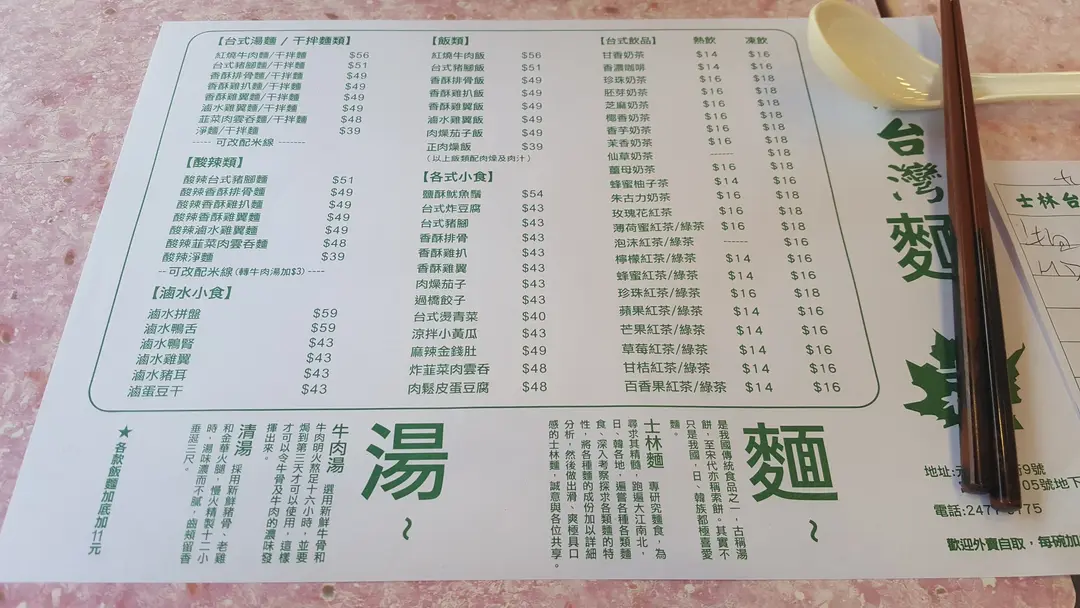 【台式湯麵 / 干拌麵類】
紅燒牛肉麵/干拌麵 $56
台式豬腳麵/干拌麵 $51
香酥排骨麵/干拌麵 $49
香酥雞扒麵/干拌麵 $49
香酥雞翼麵/干拌麵 $49
滷水雞翼麵/干拌麵 $49
韮菜肉雲吞麵/干拌麵 $48
淨麵/干拌麵 $39
----- 可改配米線 -------
【酸辣類】
酸辣台式豬腳麵 $51
酸辣香酥排骨麵 $49
酸辣香酥雞扒麵 $49
酸辣香酥雞翼麵 $49
酸辣滷水雞翼麵 $49
酸辣韮菜肉雲吞麵 $48
酸辣淨麵 $39
--可改配米線(轉牛肉湯加$3)----
【滷水小食】
滷水拼盤 $59
滷水鴨舌 $59
滷水鴨腎 $43
滷水雞翼 $43
滷水豬耳 $43
滷蛋豆干 $43
【飯類】
紅燒牛肉飯 $56
台式豬腳飯 $51
香酥排骨飯 $49
香酥雞扒飯 $49
香酥雞翼飯 $49
滷水雞翼飯 $49
肉燥茄子飯 $49
正肉燥飯 $39
(以上飯類配肉燥及肉汁)
【各式小食】
鹽酥魷魚鬚 $54
台式炸豆腐 $43
台式豬腳 $43
香酥排骨 $43
香酥雞扒 $43
香酥雞翼 $43
肉燥茄子 $43
過橋餃子 $43
台式燙青菜 $40
涼拌小黃瓜 $43
麻辣金錢肚 $49
炸韮菜肉雲吞 $48
肉鬆皮蛋豆腐 $48
【台式飲品】 熱飲 凍飲
甘香奶茶 $14 $16
香濃咖啡 $14 $16
珍珠奶茶 $16 $18
胚芽奶茶 $16 $18
芝麻奶茶 $16 $18
椰香奶茶 $16 $18
香芋奶茶 $16 $18
茉香奶茶 $16 $18
仙草奶茶 ------ $18
薑母奶茶 $16 $18
蜂蜜柚子茶 $14 $16
朱古力奶茶 $16 $18
玫瑰花紅茶 $16 $18
薄荷蜜紅茶/綠茶 $16 $18
泡沫紅茶/綠茶 ------ $16
檸檬紅茶/綠茶 $14 $16
蜂蜜紅茶/綠茶 $14 $16
珍珠紅茶/綠茶 $16 $18
蘋果紅茶/綠茶 $14 $16
芒果紅茶/綠茶 $14 $16
草莓紅茶/綠茶 $14 $16
甘桔紅茶/綠茶 $14 $16
百香果紅茶/綠茶 $14 $16
台灣麵
士林台
麵~
是我國傳統食品之一，古稱湯
餅，至宋代亦稱索餅。其實不
只是我國，日、韓族都極喜愛
麵。
士林麵 專研究麵食，為
尋求其精髓，跑遍大江南北，
日、韓各地，遍嘗各種各類麵
食，深入考察探求各類麵的特
性，將各種麵的成份加以詳細
分析，然後做出滑、爽極具口
感的士林麵，誠意與各位共享。
湯~
牛肉湯 選用新鮮牛骨和
牛肉明火熬足十六小時，並要
焗到第三天才可以使用，這樣
才可以令牛骨及牛肉的濃味發
揮出來。
清湯 採用新鮮豬骨、老雞
和金華火腿，慢火精製十二小
時，湯味濃而不膩，齒頰留香
垂涎三尺。
★ 各款飯麵加底加11元
地址:元 街9號
05號地下
電話:247 775
歡迎外賣自取，每碗加